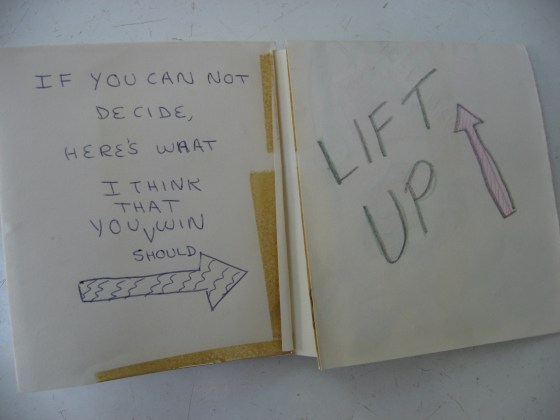 IF YOU CAN NOT
DECIDE,
HERE'S WHAT
I THINK
THAT
YOU WIN
SHOULD
LIFT
UP